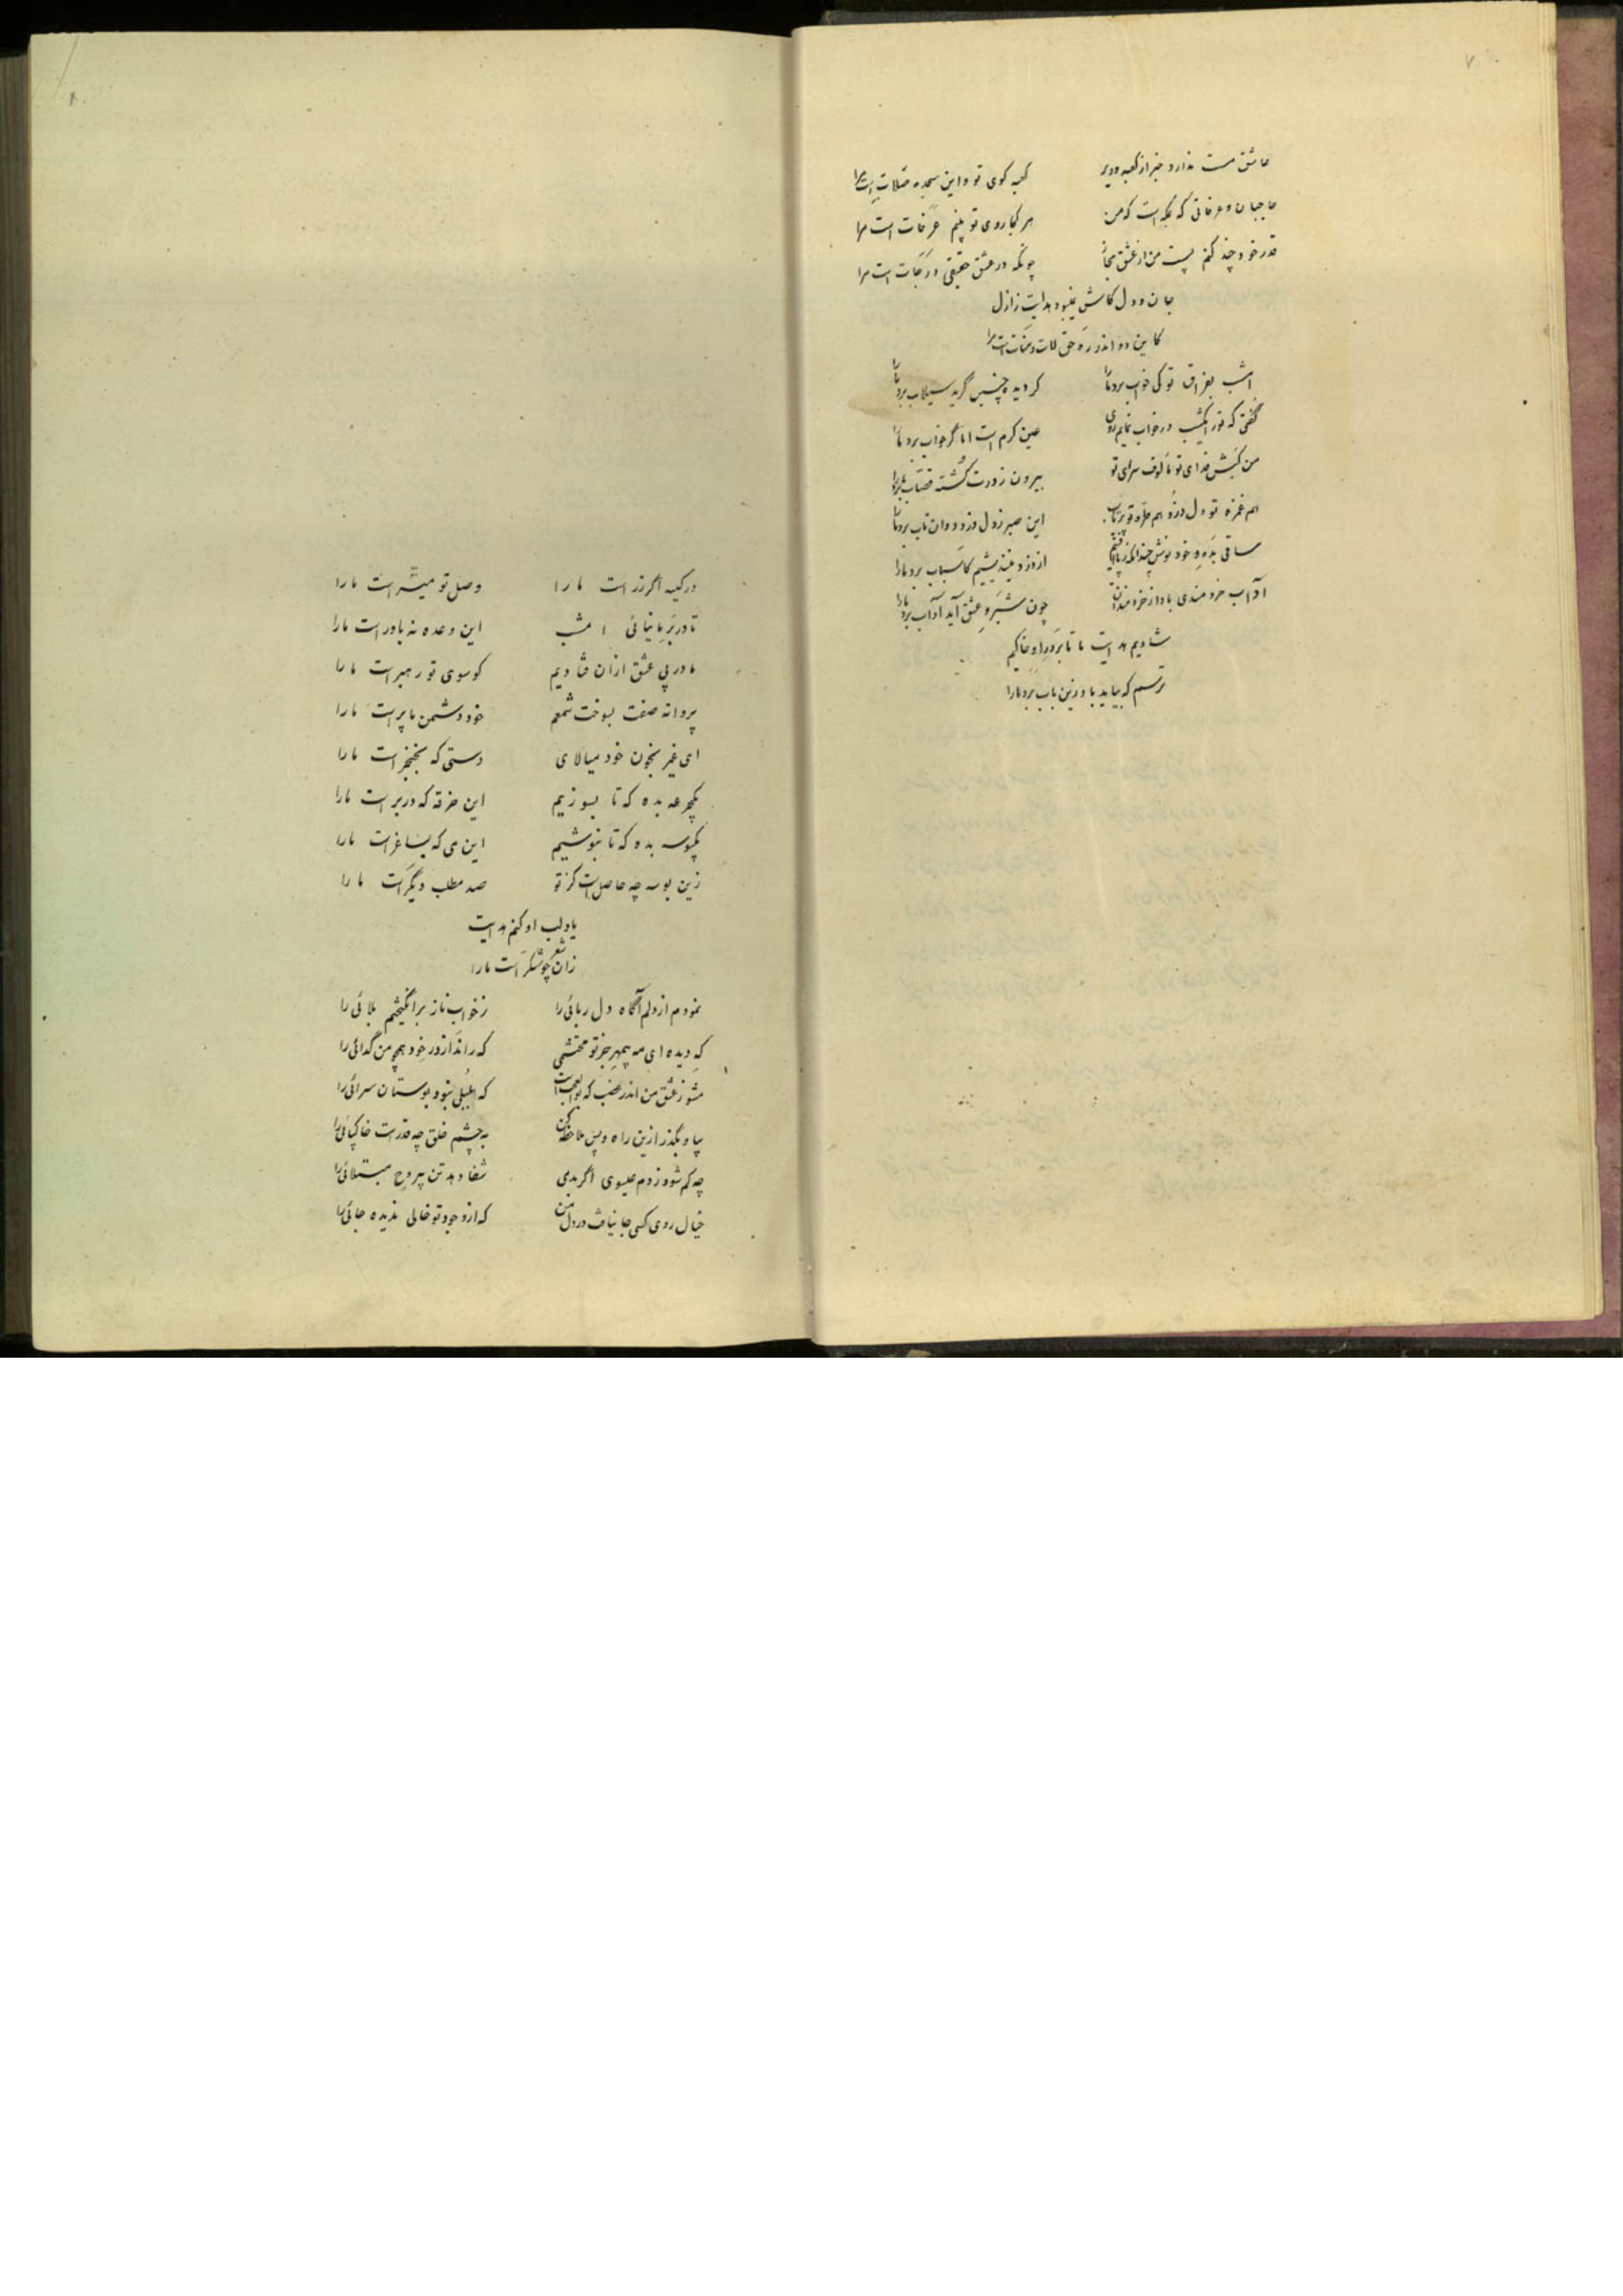 ۷
عاشق مست ندارد خبر از کعبه و دیر کعبه کوی تو و این سجده صلات است مرا
حاجیان و عرفاتی که بمکه است که من هر کجا روی تو بینم عرفات است مرا
قدر خود چند کنم پست من از عشق مجاز چونکه در عشق حقیقی درجات است مرا
جان و دل کاش نمیبود هدایت ز ازل
کاین دو اندر ره حق لات و منات است مرا
امشب بفراق تو کی خواب برد ما را کز دیده چنین گریه سیلاب برد ما را
گفتی که تو را یکشب در خواب نمایم روی عین کرم است اما گر خواب برد ما را
من کبش فدای تو مألوف سرای تو بیرون ز درت کشته قصاب برد ما را
هم غمزه تو دل دزد هم طره تو پرتاب این صبر ز دل دزدد وان تاب برد ما را
ساقی بده و خود نوش چندانکه ز پا افتیم از دزد نیندیشیم کاسباب برد ما را
آداب خردمندی با ما ز خردمندان چون شبرو عشق آید آداب برد ما را
شادیم هدایت ما تا بر در او خاکیم
ترسم که بیاید باد وزین باب برد ما را
۸
در کیسه اگر زر است ما را وصل تو میسر است ما را
تا در بر ما نیائی امشب این وعده نه باور است ما را
ما در پی عشق ازان فتادیم کو سوی تو رهبر است ما را
پروانه صفت بسوخت شمعم خود دشمن ما پر است ما را
ای غیر بخون خود میالای دستی که بخنجر است ما را
یکجرعه بده که تا بسوزیم این خرقه که در بر است ما را
یکبوسه بده که تا ننوشیم این می که بساغر است ما را
زین بوسه چه حاصل است کز تو صد مطلب دیگر است ما را
یاد لب او کنم هدایت
زان شعر چو شکر است ما را
نمودم از دلم آگاه دل ربائی را ز خواب ناز برانگیختم بلائی را
که دیده ای مه بیمهر جز تو محتشمی که راند از در خود همچو من گدائی را
مشو ز عشق من اندر غضب که بوالعجب است که بلبلی نبود بوستان سرائی را
بیا و بگذر ازین راه و پس ملاحظه کن به چشم خلق چه قدر است خاکپائی را
چه کم شود ز دم عیسوی اگر بدمی شفا دهد تن بیروح مبتلائی را
خیال روی کسی جا نیافت در دل من که از وجود تو خالی ندیده جائی را